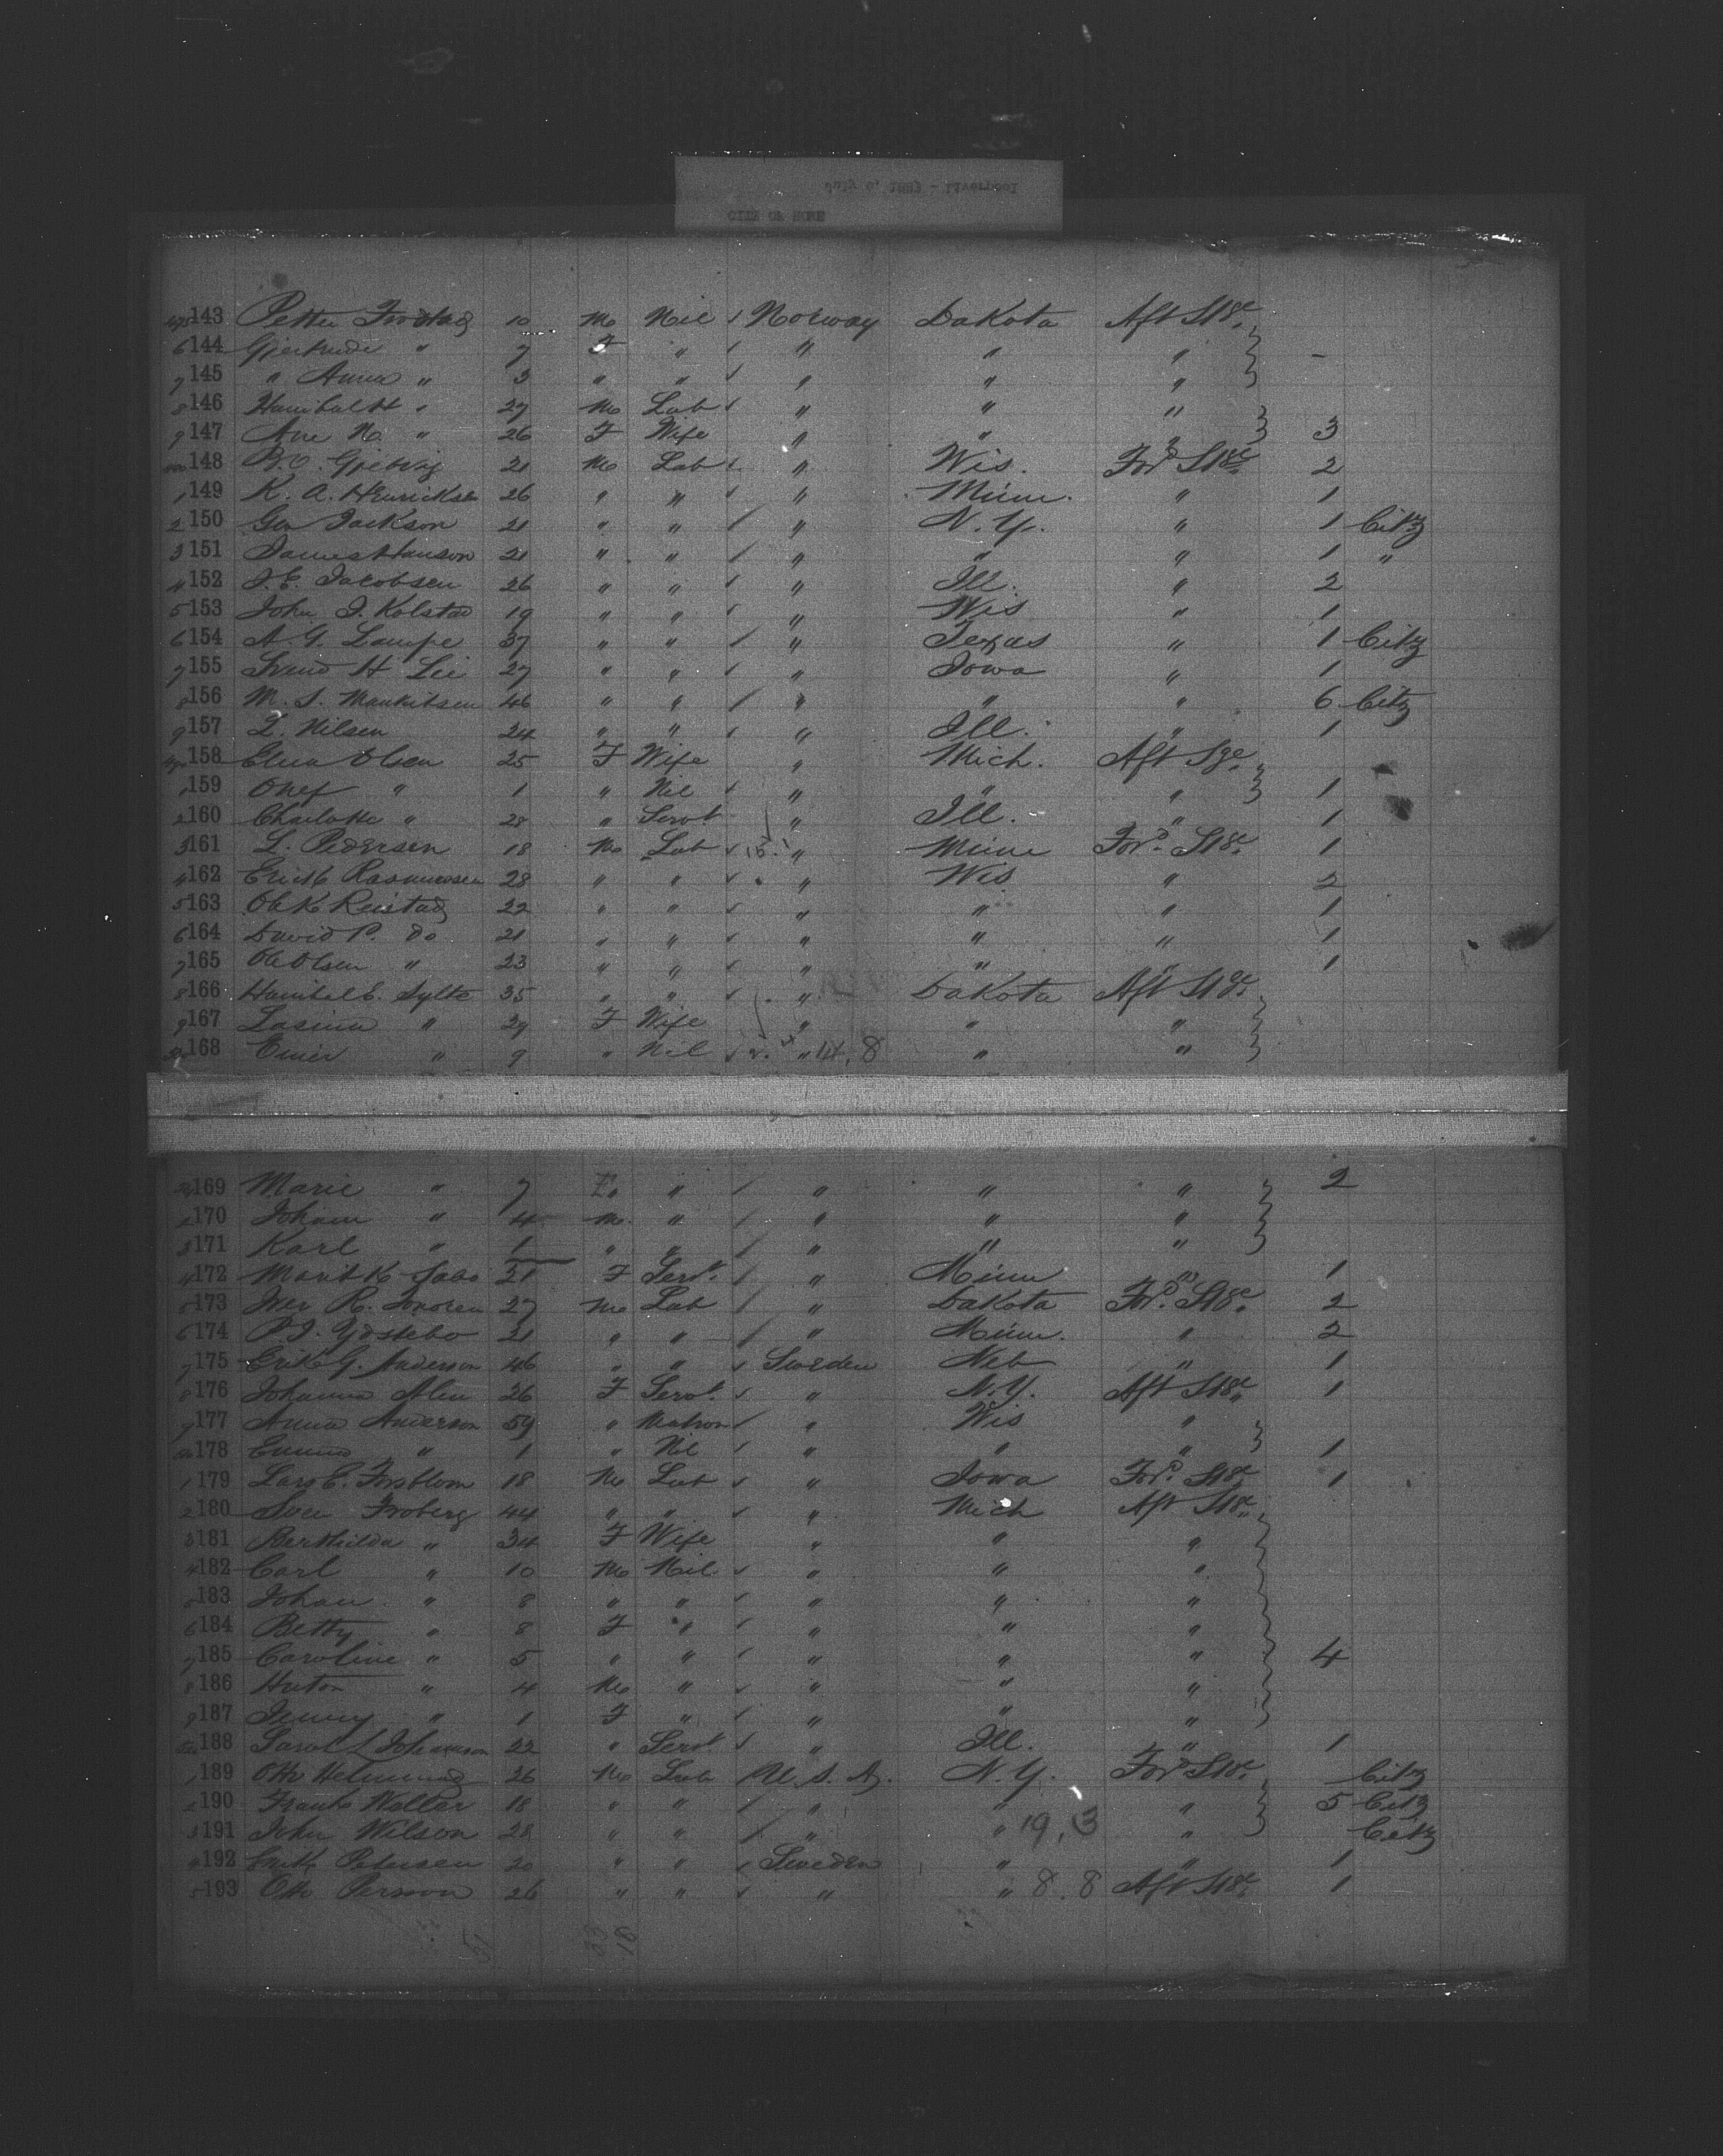 July 6, 1883 - Liverpool
CITY OF ROME
143 Petter Frostad 10 M Nil Norway Dakota Aft Stge
6 144 Gjertrude " 7 F " " " "
7 145 " Anna " 3 " " " " "
8 146 Hanibal H " 27 M Lab " " "
9 147 Ane N. " 26 F Wife " " " 3
148 21 M Lab " Wis. Ford Stge 2
1 149 K. A. Henriksen 26 " " " Minn. " 1
2 150 Geo Jackson 21 " " " N. Y. " 1 Citz
3 151 James Hanson 21 " " " " " 1 "
4 152 J. E. Jacobsen 26 " " " Ill. " 2
5 153 John J. Kolstad 19 " " " Wis " 1
6 154 A. G. Lampe 37 " " " Texas " 1 Citz
7 155 Svend H Lie 27 " " " Iowa " 1
8 156 M. S. 46 " " " " " 6 Citz
9 157 Nilsen 24 " " " Ill. " 1
158 Elina Olsen 25 F Wife " Mich. Aft Sge
1 159 " 1 " Nil " " " 1
2 160 Charlotte " 28 " Servt " Ill. " 1
3 161 L. Pedersen 18 M Lab 15. " Minn Ford Stge 1
4 162 Erick Rasmussen 28 " " " Wis " 2
5 163 Ole K Reistad 22 " " " " " 1
6 164 David P. do 21 " " " " " 1
7 165 Ole Olsen " 23 " " " " " 1
8 166 Hanibal E. Sylte 35 " " " Dakota Aft Stge
9 167 " 29 F Wife " " "
168 " 9 " Nil " 14.8 " "
169 Marie " 7 F " " " " 2
2 170 Johan " 4 M " " " "
3 171 Karl " 1 " " " " "
4 172 Marit K Sabo 21 F Servt. " Minn " 1
5 173 Iver R. 27 M Lab " Dakota Ford Stge 2
6 174 P. J. 21 " " " Minn. " 2
7 175 Erik G. Anderson 46 " " Sweden Neb " 1
8 176 Johanna Alin 26 F Servt. " N. Y. Aft Stge 1
9 177 Anna Anderson 59 " Matron " Wis "
178 Emma " 1 " Nil " " " 1
1 179 Lars C. Forsblom 18 M Lab " Iowa Ford Stge 1
2 180 Sven Froberg 44 " " " Mich Aft Stge
3 181 Berthilda " 34 F Wife " " "
4 182 Carl " 10 M Nil " " "
5 183 Johan " 8 " " " " "
6 184 Betty " 8 F " " " "
7 185 Caroline " 5 " " " " " 4
8 186 " 4 M " " " "
9 187 Jenny " 1 F " " " "
188 L Johanson 22 " Servt. " Ill. " 1
1 189 Otto 26 M Lab U. S. A. N. Y. Ford Stge Citz
2 190 Frank Waller 18 " " " " " 5 Citz
3 191 John Wilson 28 " " " " 19,3 " Citz
4 192 Petersen 20 " " Sweden " " 1
5 193 Otto Persson 26 " " " " 8.8 Aft Stge 1